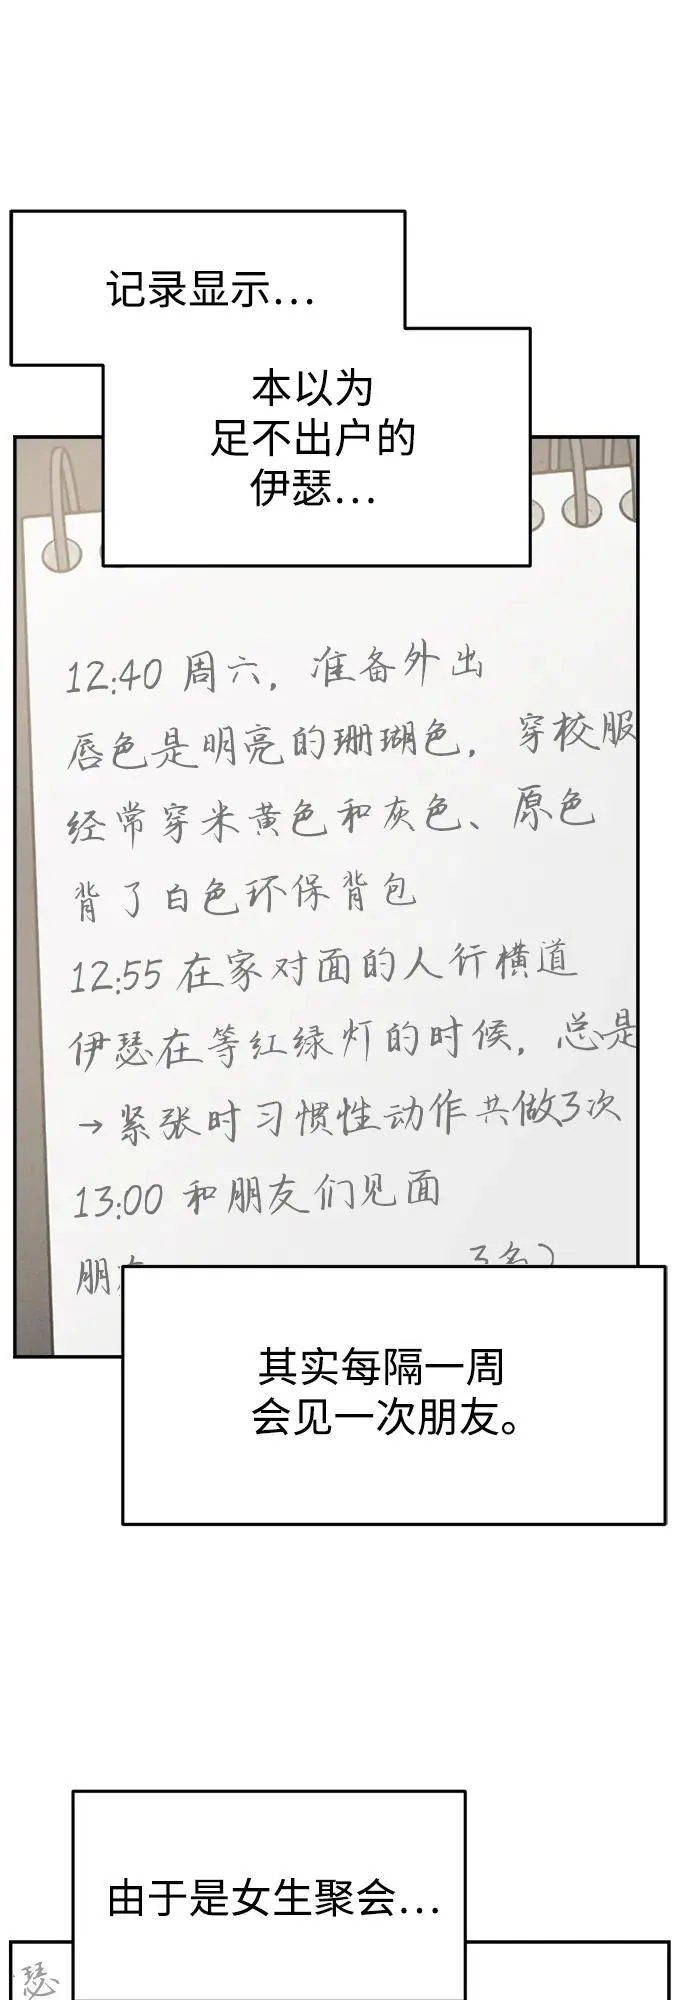 记录显示...
本以为
足不出户的
伊瑟...
12:40 周六，准备外出
唇色是明亮的珊瑚色，穿校服
经常穿米黄色和灰色、原色
背了白色环保背包
12:55 在家对面的人行横道
伊瑟在等红绿灯的时候，总是
→紧张时习惯性动作共做3次
13:00 和朋友们见面
朋友
3名)
其实每隔一周
会见一次朋友。
由于是女生聚会...
瑟